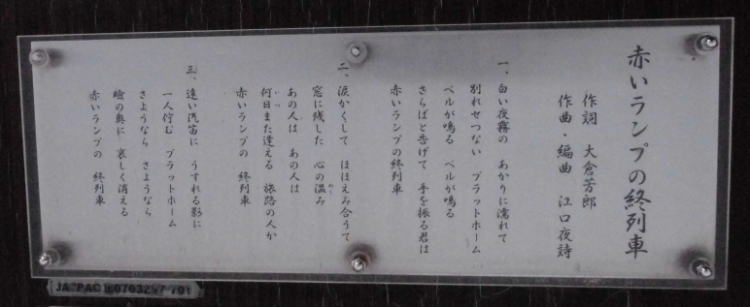 赤いランプの終列車
作詞 大倉芳郎
作曲・編曲 江口夜詩
一、白い夜霧の あかりに濡れて
別れせつない プラットホーム
ベルが鳴る ベルが鳴る
さらばと告げて 手を振る君は
赤いランプの終列車
二、涙かくして ほほえみ合うて
窓に残した 心の温み
あの人は あの人は
何日また逢える 旅路の人か
赤いランプの 終列車
三、遠い汽笛に うすれる影に
一人佇む プラットホーム
さようなら さようなら
瞼の奥に 哀しく消える
赤いランプの 終列車